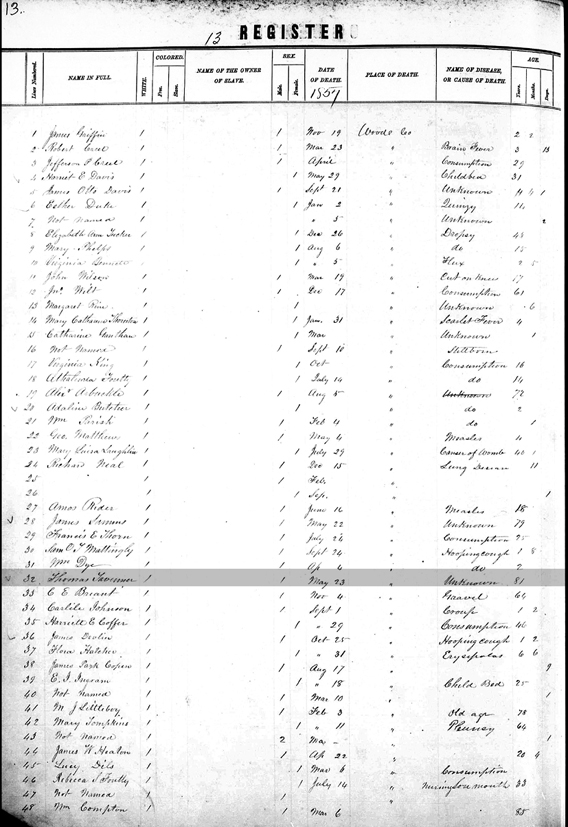 13.
13 REGISTER
Lines Numbered. NAME IN FULL WHITE. COLORED. Free. Slave. NAME OF THE OWNER OF SLAVE. SEX. Male. Female. DATE OF DEATH. 1857 PLACE OF DEATH. NAME OF DISEASE, OR CAUSE OF DEATH. AGE. Years. Months. Days.
1 James Griffin 1 1 Nov 19 Wood Co 2 2
2 Robert Creel 1 1 Mar 23 " Brain Fever 3 13
3 Jefferson P Creel 1 1 April " Consumption 29
4 Harriet E Davis 1 1 May 29 " Childbed 31
5 James Otto Davis 1 1 Sept 21 " Unknown 14 4 1
6 Esther Duke 1 1 Jan 2 " Quinzy 14
7 Not Named 1 1 " 5 " Unknown 2
8 Elizabeth Ann 1 1 Dec 26 " Dropsy 48
9 Mary Phelps 1 1 Aug 6 " do 15
10 Virginia Bennett 1 1 " 5 " Flux 2 5
11 John Wilson 1 1 Mar 19 " Cut on Knee 17
12 Jno. Witt 1 1 Dec 17 " Consumption 61
13 Margaret 1 1 " Unknown 6
14 Mary Catharine Thornton 1 1 Jan. 31 " Scarlet Fever 4
15 Catharine 1 1 Mar " Unknown 1
16 Not Named 1 1 Sept 10 " Stillborn
17 Virginia King 1 1 Oct " Consumption 16
18 1 1 July 14 " do 14
19 Alexr Arbuckle 1 1 Aug 5 " Unknown 72
20 Adaline Butcher 1 1 " do 2
21 Wm Parish 1 1 Feb 4 " do 1
22 Geo. Matthew 1 1 May 4 " Measles 4
23 Mary Luisa Laughlin 1 1 July 29 " Cancer of Womb 40 1
24 Richard Neal 1 1 Dec 15 " Lung Disease 11
25 1 1 Feb. "
26 1 1 Sep. " 1
27 Amos Rider 1 1 June 16 " Measles 18
28 James Simms 1 1 May 22 " Unknown 79
29 Francis E Thorn 1 1 July 26 " Consumption 25
30 Sam O. T Mattingly 1 1 Sept 24 " Hooping cough 1 8
31 Wm Dye 1 1 Ap 4 " do 2
32 Thomas Tavenner 1 1 May 23 " Unknown 81
33 C E Briant 1 1 Nov 4 " Gravel 64
34 Carlile Johnson 1 1 Sept 1 " Croup 1 2
35 Harriett E Coffer 1 1 " 29 " Consumption 46
36 James Devlin 1 1 Oct 25 " Hooping cough 1 2
37 Flora Hatcher 1 1 " 31 " Erysipelas 6 6
38 James Park Copen 1 1 Aug 17 " 9
39 E. J. Ingram 1 1 " 18 " Child Bed 25
40 Not Named 1 1 Mar 10 " 1
41 M J Littleboy 1 1 Feb 3 " Old age 78
42 Mary Tompkins 1 1 " 11 " Pleurisy 64
43 Not Named 2 2 May - " 1
44 James W Heaton 1 1 Ap 22 " 20 4
45 Lucy Dils 1 1 Mar 6 " Consumption
46 Rebecca S Foutty 1 1 July 14 " Nursing Sore mouth 33
47 Not Named 1 1 " 1
48 Wm Compton 1 1 Mar 6 " 85